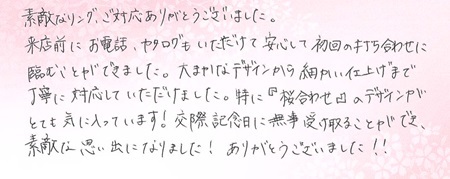 素敵なリング、ご対応ありがとうございました。
来店前にお電話、カタログもいただけて安心して初回の打ち合わせに
臨むことができました。大まかなデザインから細かい仕上げまで
丁寧に対応していただけました。特に『桜合わせ』のデザインが
とても気に入っています!交際記念日に無事受け取ることができ、
素敵な思い出になりました!ありがとうございました!!